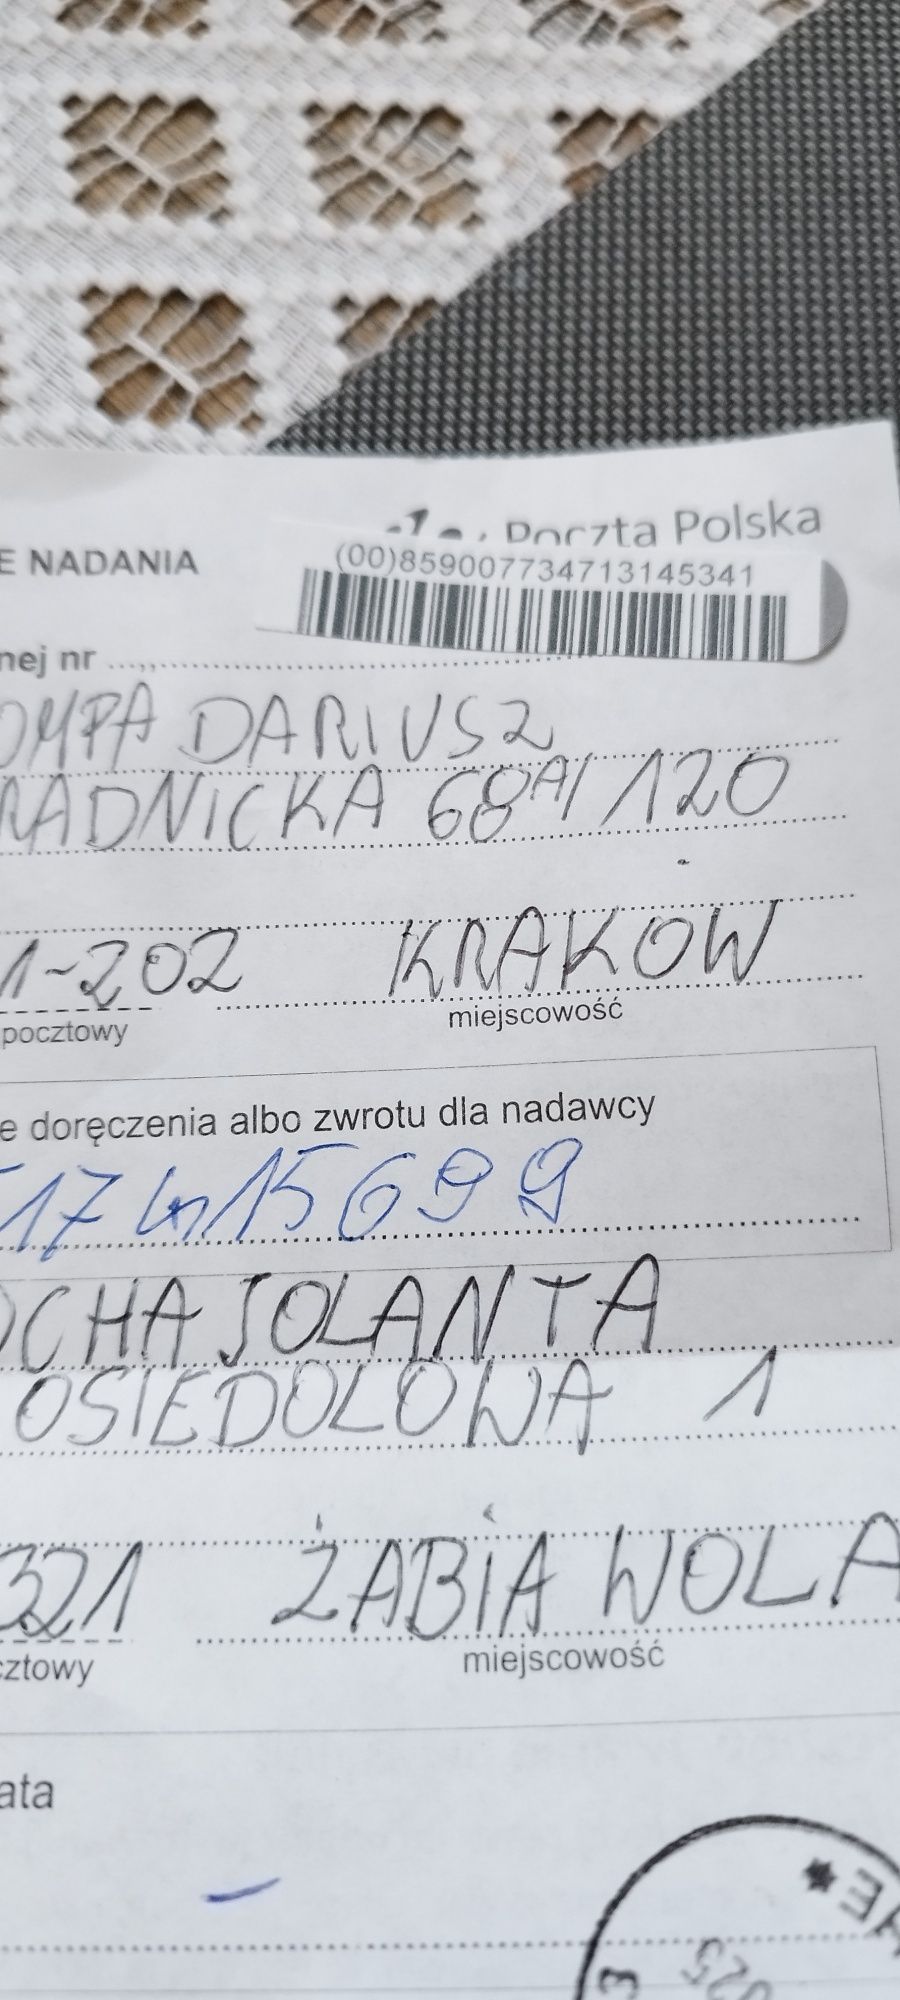 Poczta Polska
E NADANIA
(00)859007734713145341
nej nr
OMPA DARIUSZ
RADNICKA 68A/ 120
1-202 KRAKOW
pocztowy miejscowość
e doręczenia albo zwrotu dla nadawcy
15699
OCHA JOLANTA
OSIEDOLOWA 1
321 ŻABIA WOLA
cztowy miejscowość
ata